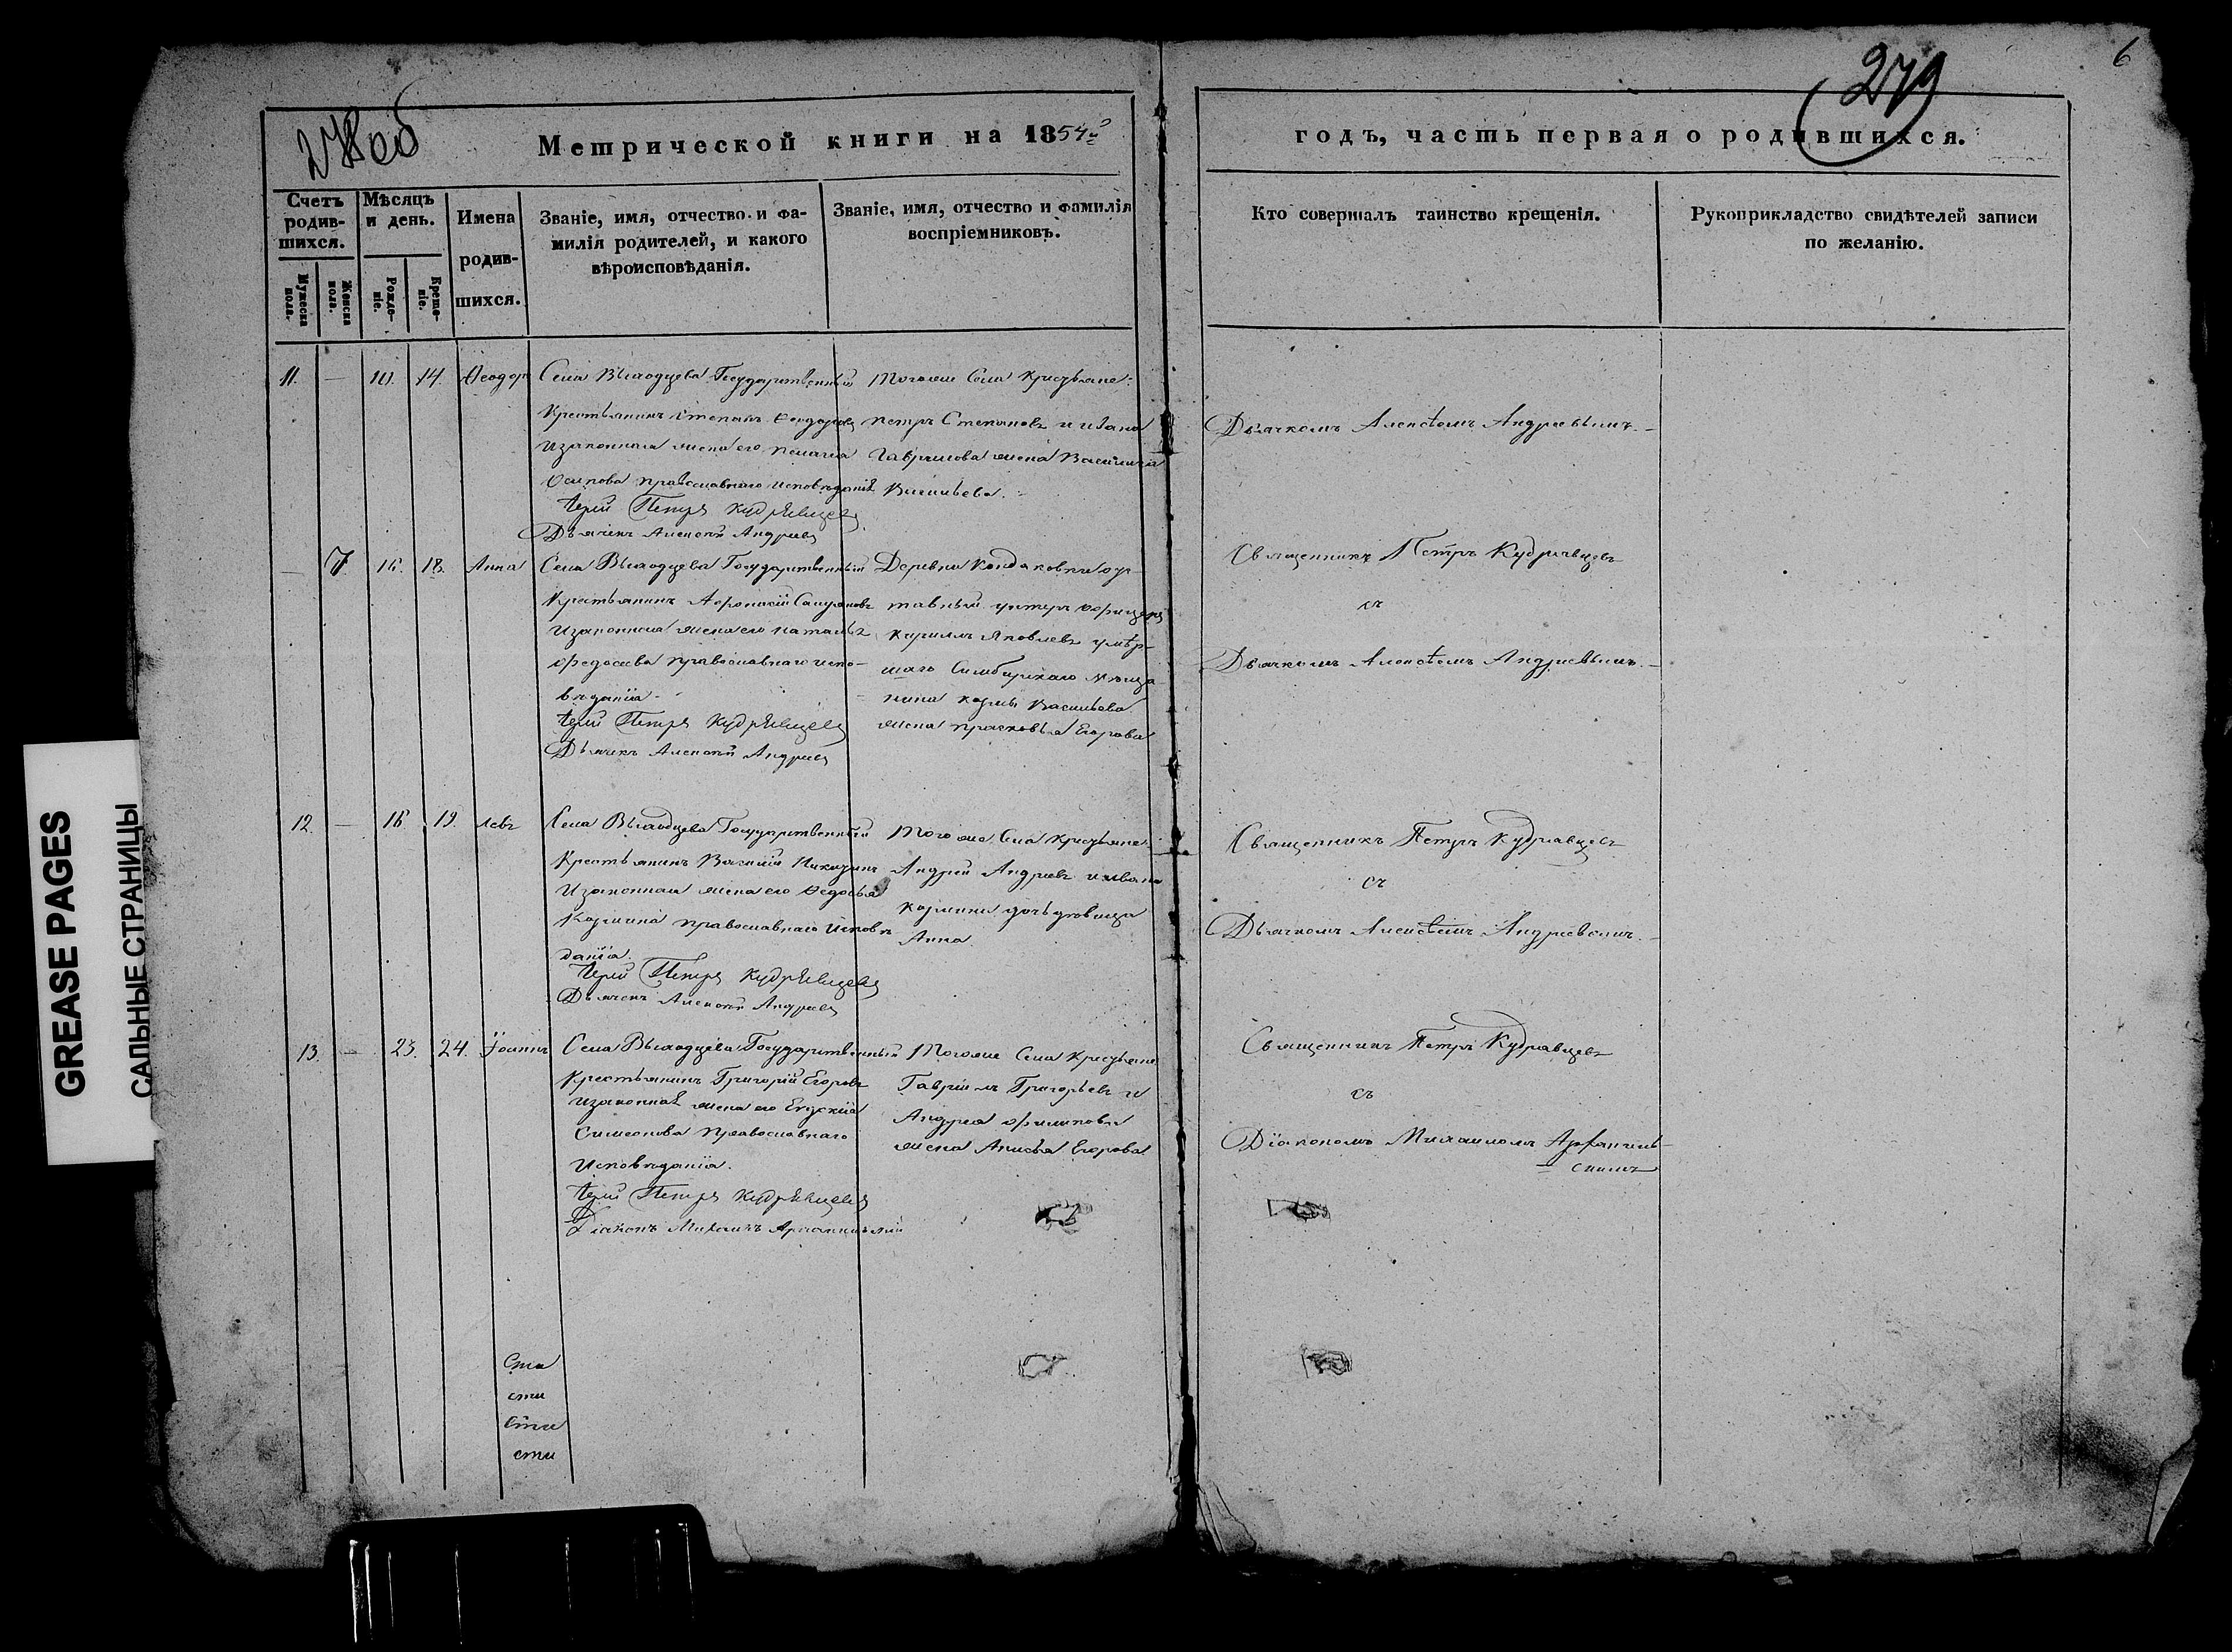 278 об
279
6
Метрической книги на 1854й
годъ, часть первая о родившихся.
Счетъ родив-шихся.
Мужеска пола.
Женска пола.
Мѣсяцъ и день.
Рожде-ніе.
Креще-ніе.
Имена
родив-
шихся.
Званіе, имя, отчество и фа-
милія родителей, и какого
вѣроисповѣданія.
Званіе, имя, отчество и фамилія
воспріемниковъ.
Кто совершалъ таинство крещенія.
Рукоприкладство свидѣтелей записи
по желанію.
11. — 10. 14. Ѳеодоръ
Села Выходцева Государственный
Крестьянинъ Степанъ Ѳеодоровъ
и законная жена его Пелагія
Осипова православнаго исповѣданія
Іерей Петръ Кудрявцевъ
Дьячекъ Алексѣй Андреевъ
Тогоже Села Крестьяне:
Петръ Степановъ и Ивана
Гаврилова жена Васильева.
Дьячкомъ Алексѣемъ Андреевымъ.
— 7. 16. 18. Анна
Села Выходцева Государственный
Крестьянинъ
и законная жена его Наталья
Федосеева православнаго испо-
вѣданія.
Іерей Петръ Кудрявцевъ
Дьячекъ Алексѣй Андреевъ
Деревни Кондаковки от-
тавный унтеръ офицеръ
Кириллъ Яковлевъ умер-
шаго Симбирскаго мѣща
нина Козмы Васильева
жена Прасковья Егорова
Священникъ Петръ Кудрявцевъ
съ
Дьячкомъ Алексѣемъ Андреевымъ.
12. — 18. 19. Левъ
Села Выходцева Государственный
Крестьянинъ Василій Никитинъ
и законная жена его Ѳедосья
Козмина православнаго исповѣ
данія.
Іерей Петръ Кудрявцевъ
Дьячекъ Алексѣй Андреевъ
Тогоже Села Крестьяне:
Андрей Андреевъ и Ивана
Козмина дочь дѣвица
Анна.
Священникъ Петръ Кудрявцевъ
съ
Дьячкомъ Алексѣемъ Андреевымъ.
13. — 23. 24. Іоаннъ
Села Выходцева Государственный
Крестьянинъ Григорій Егоровъ
и законная жена его Евдокія
Симеонова Православнаго
Исповѣданія.
Іерей Петръ Кудрявцевъ
Діаконъ Михаилъ Архангельскій
Тогоже Села Крестьяне
Гавріилъ Григорьевъ и
Андрея Филипова
жена Анисья Егорова
Священникъ Петръ Кудрявцевъ
съ
Діакономъ Михаиломъ Архангель-
скимъ
GREASE PAGES
САЛЬНЫЕ СТРАНИЦЫ